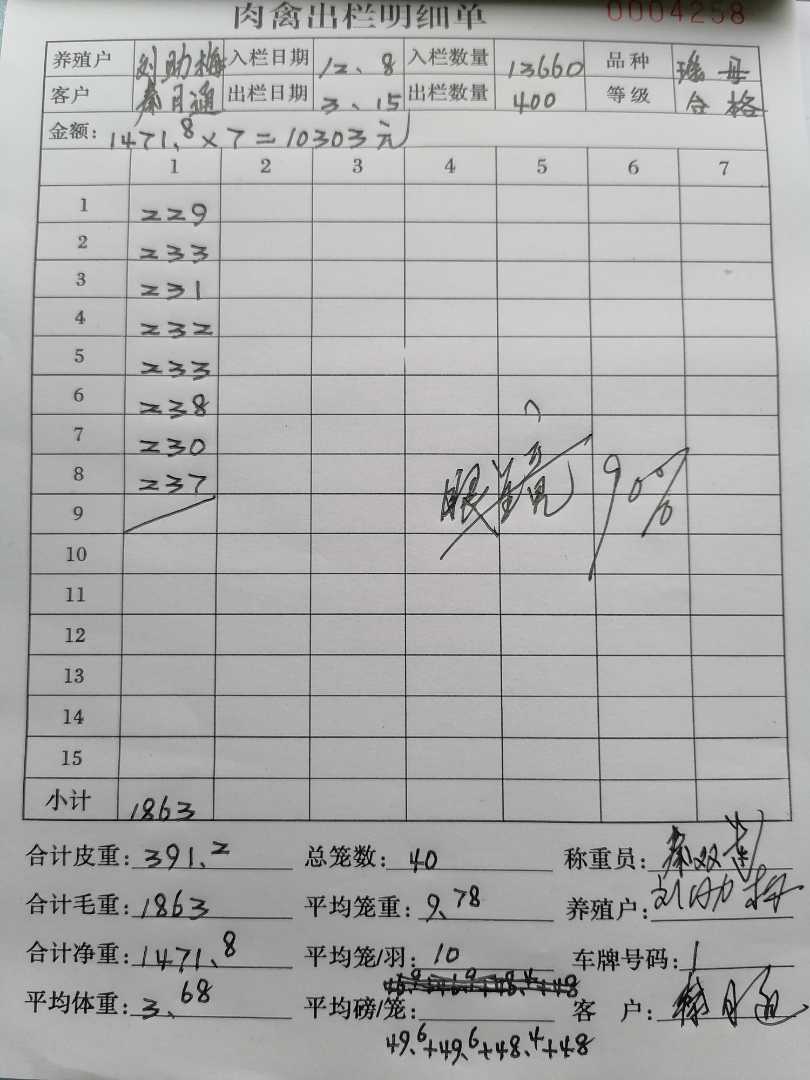 肉禽出栏明细单 0004258
养殖户 刘助梅 入栏日期 12、8 入栏数量 13660 品种 瑶母
客户 秦月通 出栏日期 3、15 出栏数量 400 等级 合格
金额: 1471.8×7=10303元
1 2 3 4 5 6 7
1 229
2 233
3 231
4 232
5 233
6 238
7 230
8 237
9
10
11
12
13
14
15
眼镜 90%
小计 1863
合计皮重: 391.2 总笼数: 40 称重员:
合计毛重: 1863 平均笼重: 9.78 养殖户: 刘助梅
合计净重: 1471.8 平均笼/羽: 10 车牌号码: 1
平均体重: 3.68 平均磅/笼: 客户:
49.6+49.6+48.4+48